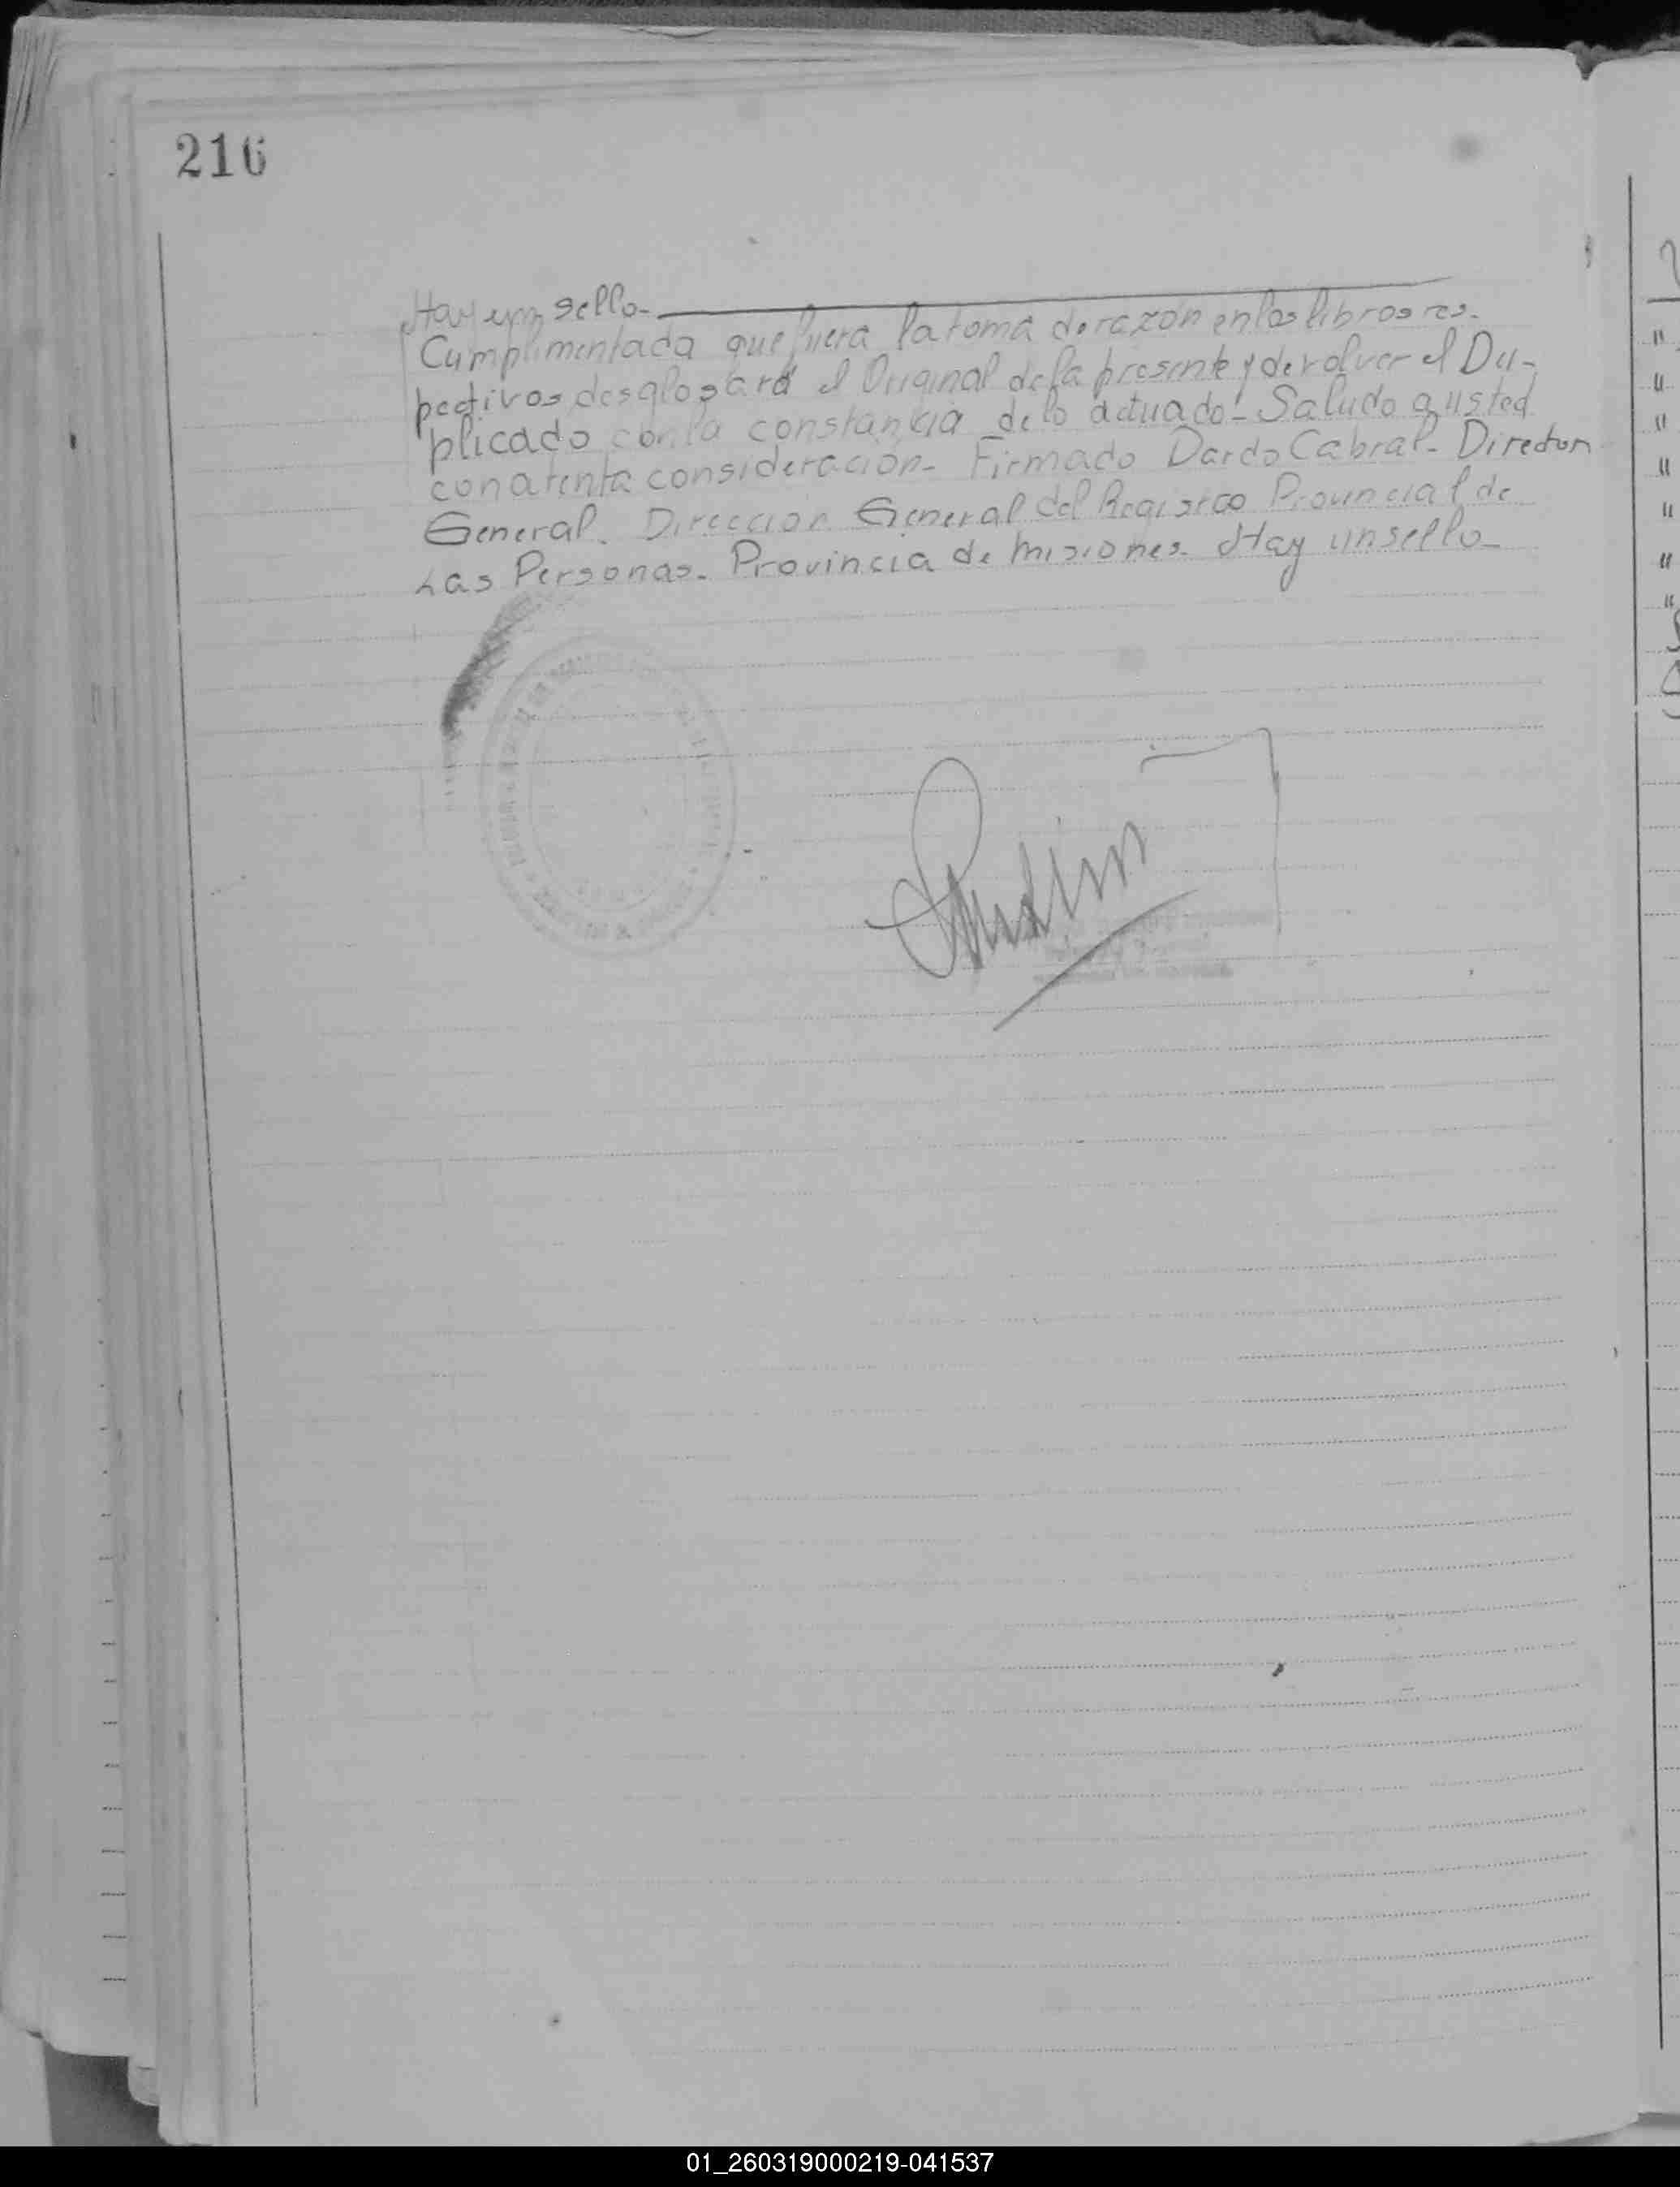 216
Hay un sello-
Cumplimentada que fuera la toma de razón en los libros res-
pectivos desglosará el Original de la presente y devolver el Du-
plicado con la constancia de lo actuado- Saludo a usted
con atenta consideración- Firmado Dardo Cabral- Director
General. Dirección General del Registro Provincial de
Las Personas- Provincia de Misiones- Hay un sello-
01_260319000219-041537